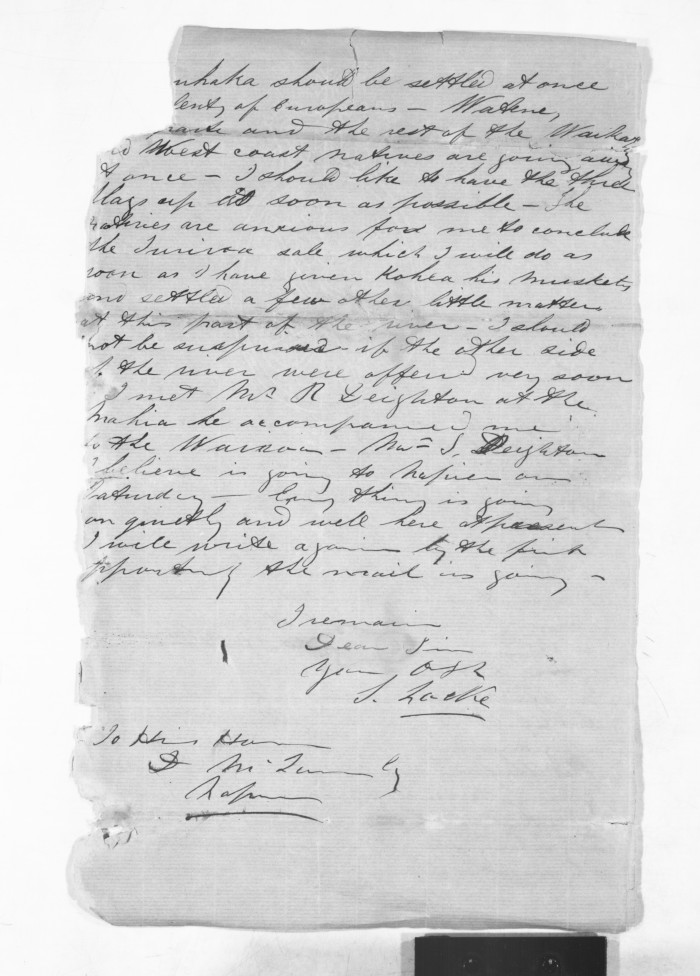 uhaka should be settled at once
lenty of Europeans - Watene,
and the rest of the Waikato
West coast natives are going away
t once - I should like to have the three
flags up as soon as possible - The
natives are anxious for me to conclude
the Turiroa sale which I will do as
soon as I have given Kohea his muskets
and settled a few other little matters
at this part of the river - I should
not be surprised if the other side
of the river were offered very soon
I met Mr R Deighton at the
Mahia he accompanied me
to the Wairoa - Mr S. Deighton
I believe is going to Napier on
Saturday - Every thing is going
on quietly and well here at present
I will write again by the first
opportunity the mail is going -
I remain
Dear Sir
Your Obt
S. Locke
To His Honor
D McLean Esq
Napier